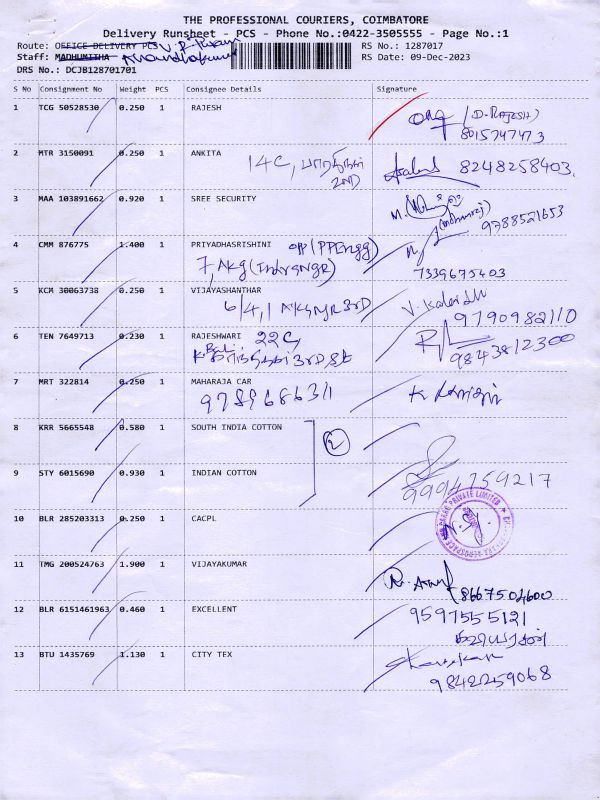 THE PROFESSIONAL COURIERS, COIMBATORE
Delivery Runsheet - PCS - Phone No.:0422-3505555 - Page No.:1
Route: OFFICE DELIVERY PCS
RS No.: 1287017
Staff: MADHUMITHA
RS Date: 09-Dec-2023
DRS No.: DCJB128701701
S No Consignment No Weight PCS Consignee Details Signature
1 TCG 50528530 0.250 1 RAJESH
(D. RAJESH)
8015747473
2 MTR 3150091 0.250 1 ANKITA
14C,
2ND
8248258403.
3 MAA 103891662 0.920 1 SREE SECURITY
9788521653
4 CMM 876775 1.400 1 PRIYADHASRISHINI
7, AKG (IndraNGR)
7339675403
5 KCM 30063738 0.250 1 VIJAYASHANTHAR
6/4,1 AKGNGR 3RD
9790982110
6 TEN 7649713 0.230 1 RAJESHWARI 22C
3RD St
9843812300
7 MRT 322814 0.250 1 MAHARAJA CAR
9789686311
8 KRR 5665548 0.580 1 SOUTH INDIA COTTON
2
9 STY 6015690 0.930 1 INDIAN COTTON
9994759217
10 BLR 285203313 0.250 1 CACPL
PRIVATE LIMITED
11 TMG 200524763 1.900 1 VIJAYKUMAR
8667504600
12 BLR 6151461963 0.460 1 EXCELLENT
9597555121
13 BTU 1435769 1.130 1 CITY TEX
9842259068